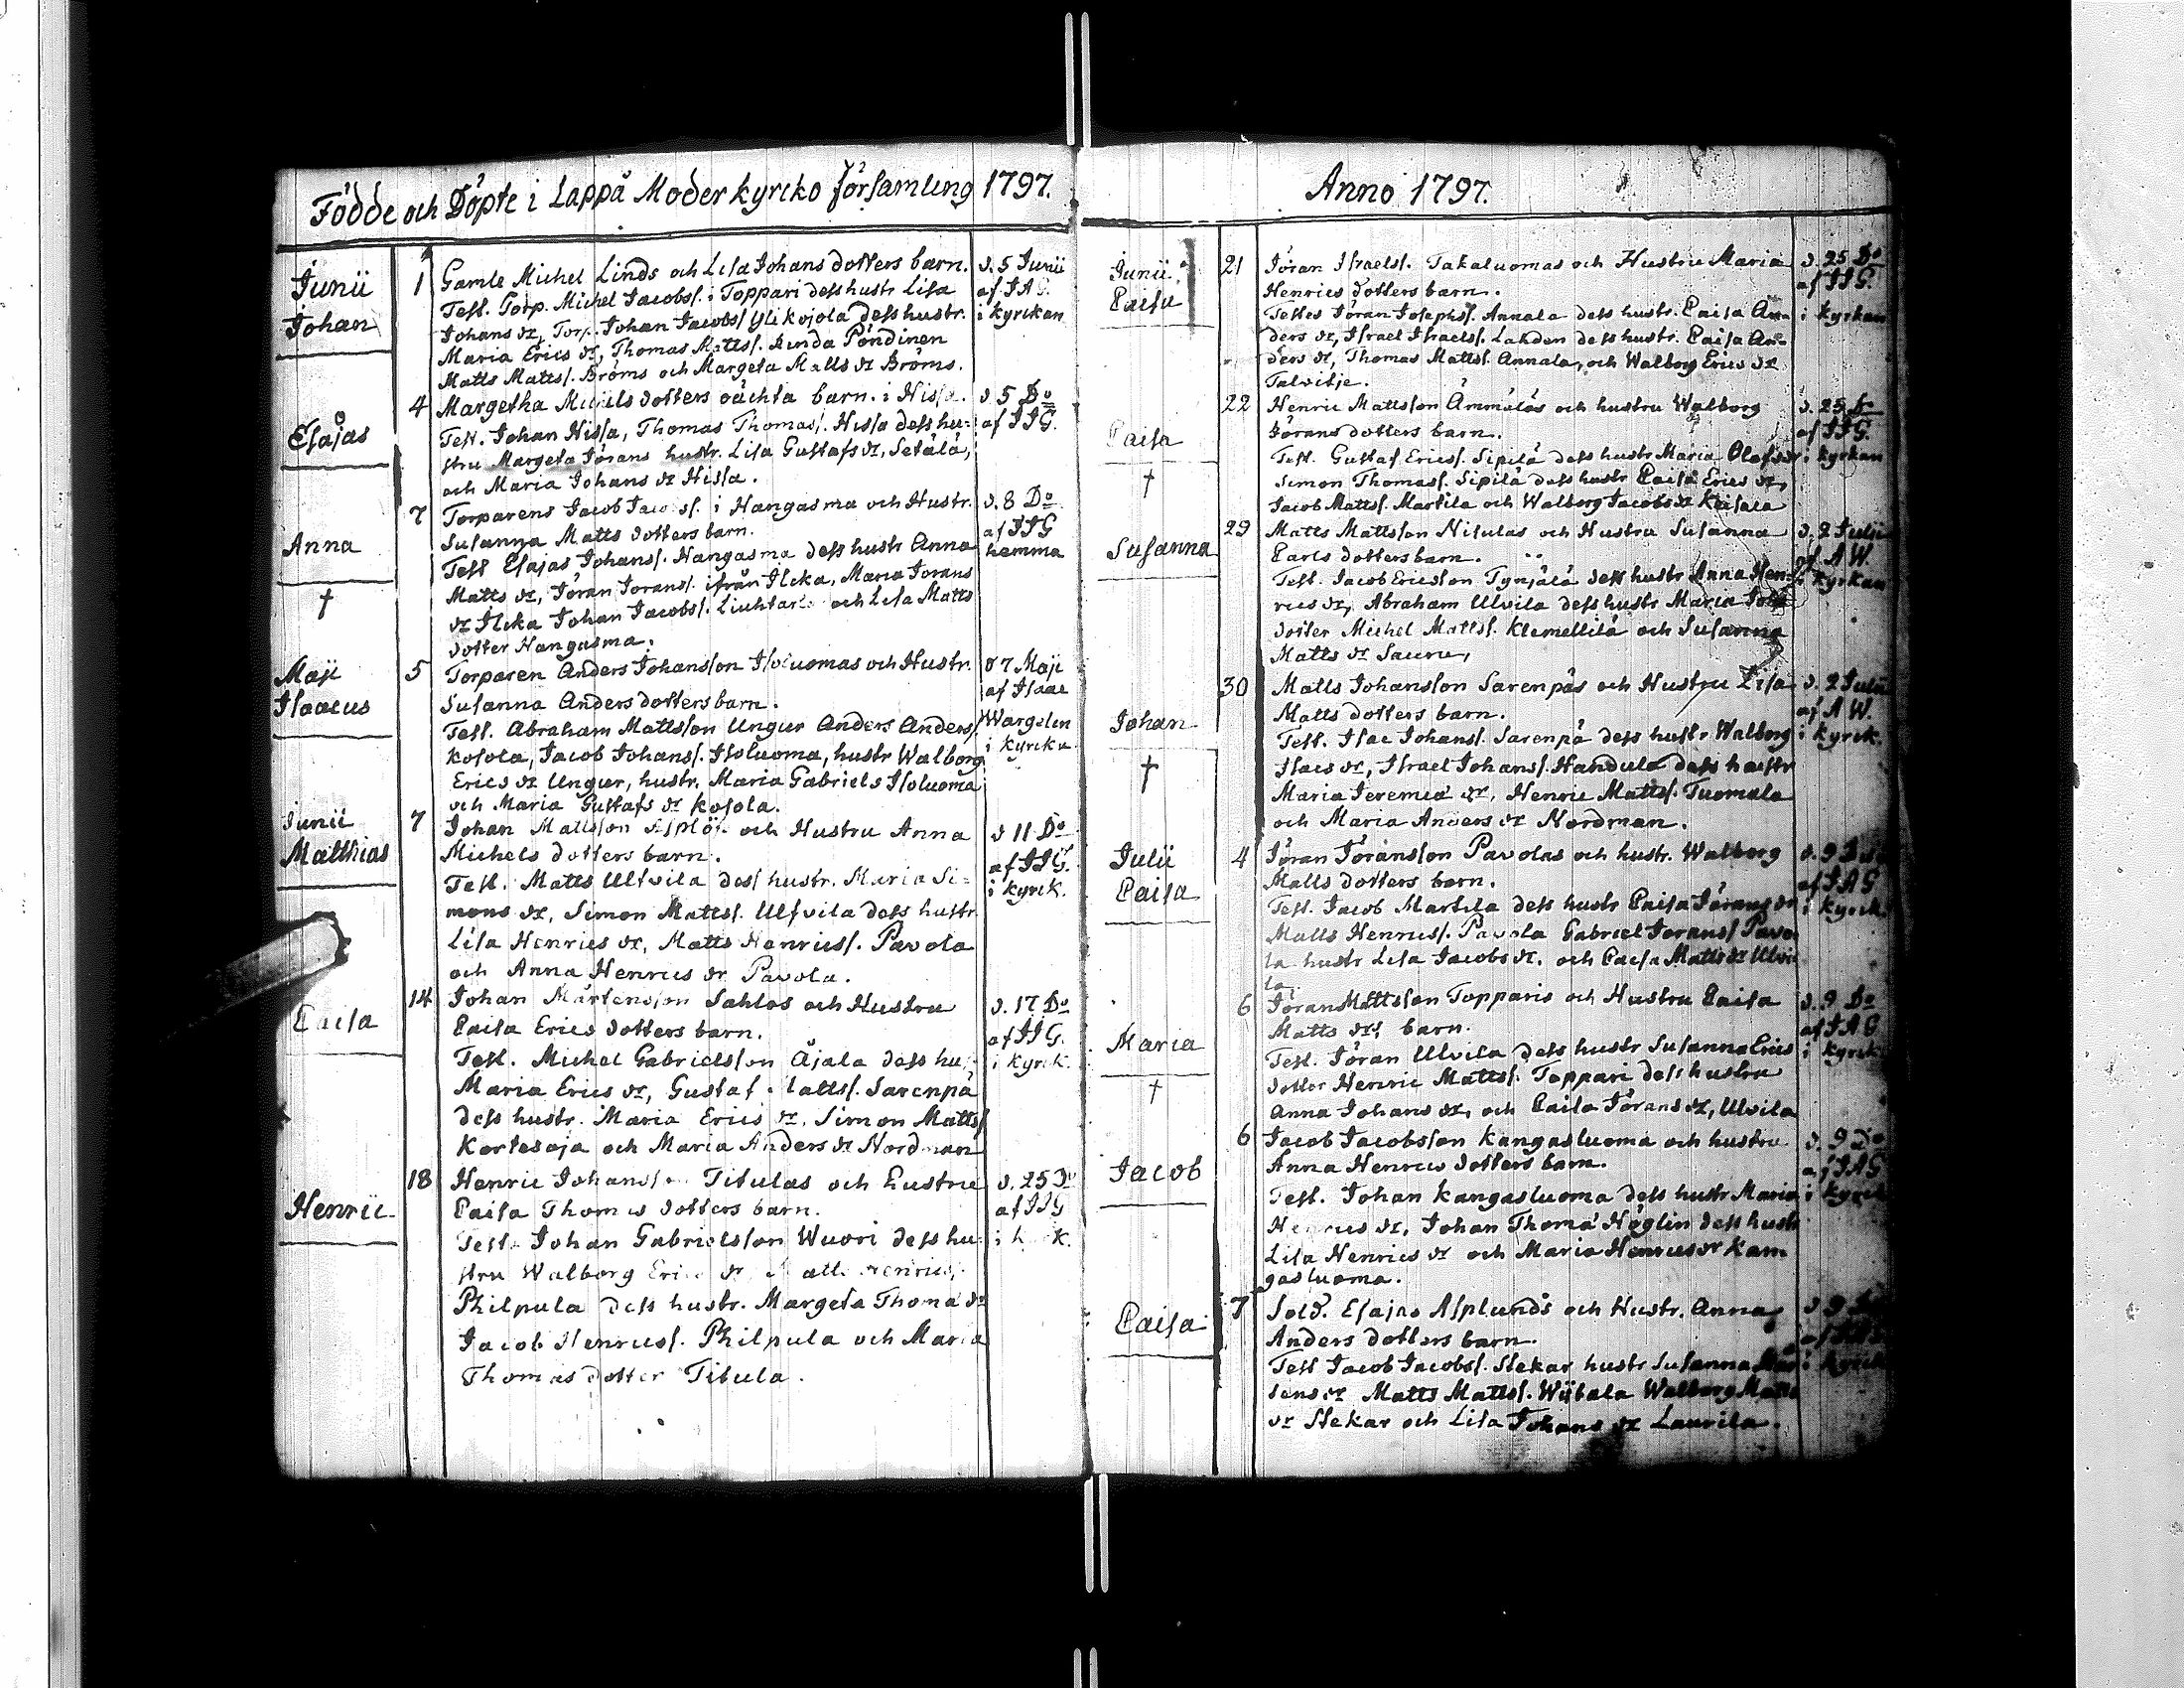 Födde och Döpte i Lappå Moderkyrko församling 1797.
Junii 1 Gamle Michel Linds och Lisa Johans dotters barn. d. 5 Junii
Johan Test. Torp. Michel Jacobss. i Toppari dess hustr Lisa af IAG.
Johans dr, Torp. Johan Jacobss Ylikojola dess hustr. i kyrkan
Maria Erics dr, Thomas Mattss. Pöndinen
Matts Mattss. Bröms och Margeta Matts dr Bröms.
Esajas 4 Margetha Michels dotters oächta barn. i Hissa. d 5 Do
Test. Johan Hissa, Thomas Thomass. Hissa dess hu= af IIG.
stru Margeta Jörans hustr. Lisa Gustafs dr, Setälä,
och Maria Johans dr Hissa.
Anna 7 Torparens Jacob Jacobss. i Hangasma och Hustr. d. 8 Do
Susanna Matts dotters barn. af IIG
Test Esajas Johanss. Hangasma dess hustr Anna hemma
† Matts dr, Jöran Joranss. ifrån Ilcka, Maria Jorans
dr Ilcka Johan Jacobss. och Lisa Matts
dotter Hangasma.
Maji 5 Torparen Anders Johansson Isoluomas och Hustr. d 7 Maji
Isaacus Susanna Anders dotters barn. af Isaac
Test. Abraham Mattsson Ungur Anders Anderss. Wargelin
Kosola, Jacob Johanss. Isoluoma, hustr Walborg i kyrcka
Erics dr Ungur, hustr. Maria Gabriels Isoluoma
och Maria Gustafs dr Kosola.
Junii 7 Johan Mattsson och Hustru Anna d 11 Do
Matthias Michels dotters barn. af IIG.
Test. Matts Ulfvila dess hustr. Maria Si= i kyrck.
mons dr, Simon Mattss. Ulfvila dess hustr.
Lisa Henrics dr, Matts Henricss. Pavola
och Anna Henrics dr Pavola.
Caisa 14 Johan Mårtensson Sahlos och Hustru d. 17 Do
Caisa Erics dotters barn. af IIG.
Test. Michel Gabrielsson Åjala dess hu= i kyrck.
Maria Erics dr, Gustaf Mattss. Sarenpä
dess hustr. Maria Erics dr. Simon Mattss
Kortesoja och Maria Anders dr Nordman
Henric 18 Henric Johansson Titulas och hustru d. 25 Do
Caisa Thomas dotters barn. af IIG
Test. Johan Gabrielsson Wuori dess hu= i
stru Walborg Erics dr Matts Henricss.
Philpula dess hustr. Margeta Thoma dr
Jacob Henricss. Philpula och Maria
Thomas dotter Titula.
Anno 1797.
Junii 21 Jöran Israelss. Takaluomas och Hustru Maria d. 25 Do
Caisa Henrics dotters barn. af IIG.
Testes Jöran Josephss. Annala dess hustr. Caisa An= i kyrkan
ders dr, Israel Israelss. Lahden dess hustr. Caisa An=
ders dr, Thomas Mattss. Annala, och Walborg Erics dr
Talvitje.
Caisa 22 Henric Mattsson Ämmäläs och hustru Walborg d. 25 Do
Jörans dotters barn. af IIG.
† Test. Gustaf Ericss. Sipilä dess hustr Maria Olofs dr i kyrkan
Simon Thomass. Sipilä dess hustr Caisa Erics dr,
Jacob Mattss. Martila och Walborg Jacobs dr Keisala
Susanna 29 Matts Mattsson Nisulas och Hustru Susanna d. 2 Julii
Carls dotters barn. af A W.
Test. Jacob Ericsson Tynjälä dess hustr Anna Hen= i kyrkan
rics dr, Abraham Ulvila dess hustr Maria
dotter Michel Mattss. Klemettilä och Susanna
Matts dr Sauru,
Johan 30 Matts Johansson Sarenpäs och Hustru Lisa d. 2 Julii
Matts dotters barn. af A W.
† Test. Isac Johanss. Sarenpä dess hustr Walborg i kyrck.
Isacs dr, Israel Johanss. Handula dess hustr
Maria Jeremiä dr, Henric Mattss. Tuomala
och Maria Anders dr Nordman.
Julii 4 Jöran Jöransson Pavolas och hustr. Walborg d. 9 Do
Caisa Matts dotters barn. af IAG
Test. Jacob Martila dess hustr Caisa Jörans dr i kyrck.
Matts Henricss. Pavola Gabriel Joranss Pavo
la hustr Lisa Jacobs dr, och Caisa Matts dr Ulvi
la.
Maria 6 Jöran Mattsson Topparis och Hustru Caisa d. 9 Do
Matts drs barn. af IAG
† Test. Jöran Ulvila dess hustr Susanna Erics i kyrck
dotter Henric Mattss. Toppari dess hustru
Anna Johans dr, och Caisa Jörans dr, Ulvila
Jacob 6 Jacob Jacobsson Kangasluoma och hustru d. 9 Do
Anna Henrics dotters barn. af IAG
Test. Johan Kangasluoma dess hustr Maria i kyrck
Henrics dr, Johan Thomä Höglin dess hustr
Lisa Henrics dr och Maria Henrics dr Kan
gasluoma.
Caisa 7 Sold. Esajas Asplunds och Hustr. Anna d 9
Anders dotters barn.
Test Jacob Jacobss. Slekar hustr Susanna i kyrck
tens dr Matts Mattss. Wijtala Walborg Matts
dr Slekar och Lisa Johans dr Laurila.